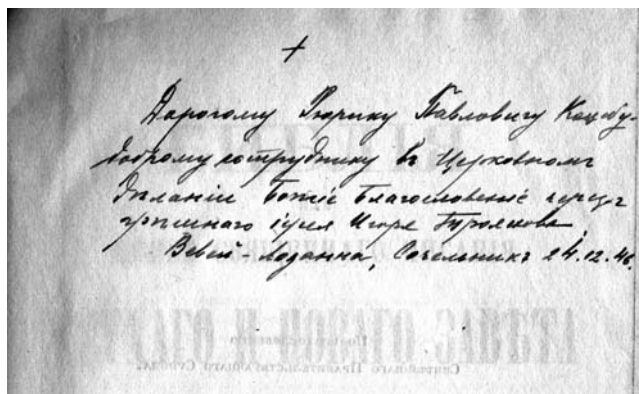 +
Дорогому Рюрику Павловичу Коцебу-
доброму сотруднику въ Церковномъ
Дѣланіи Божіе Благословеніе черезъ
грѣшнаго іерея Игоря Троянова.
Вевей - Лозанна, Сочельникъ